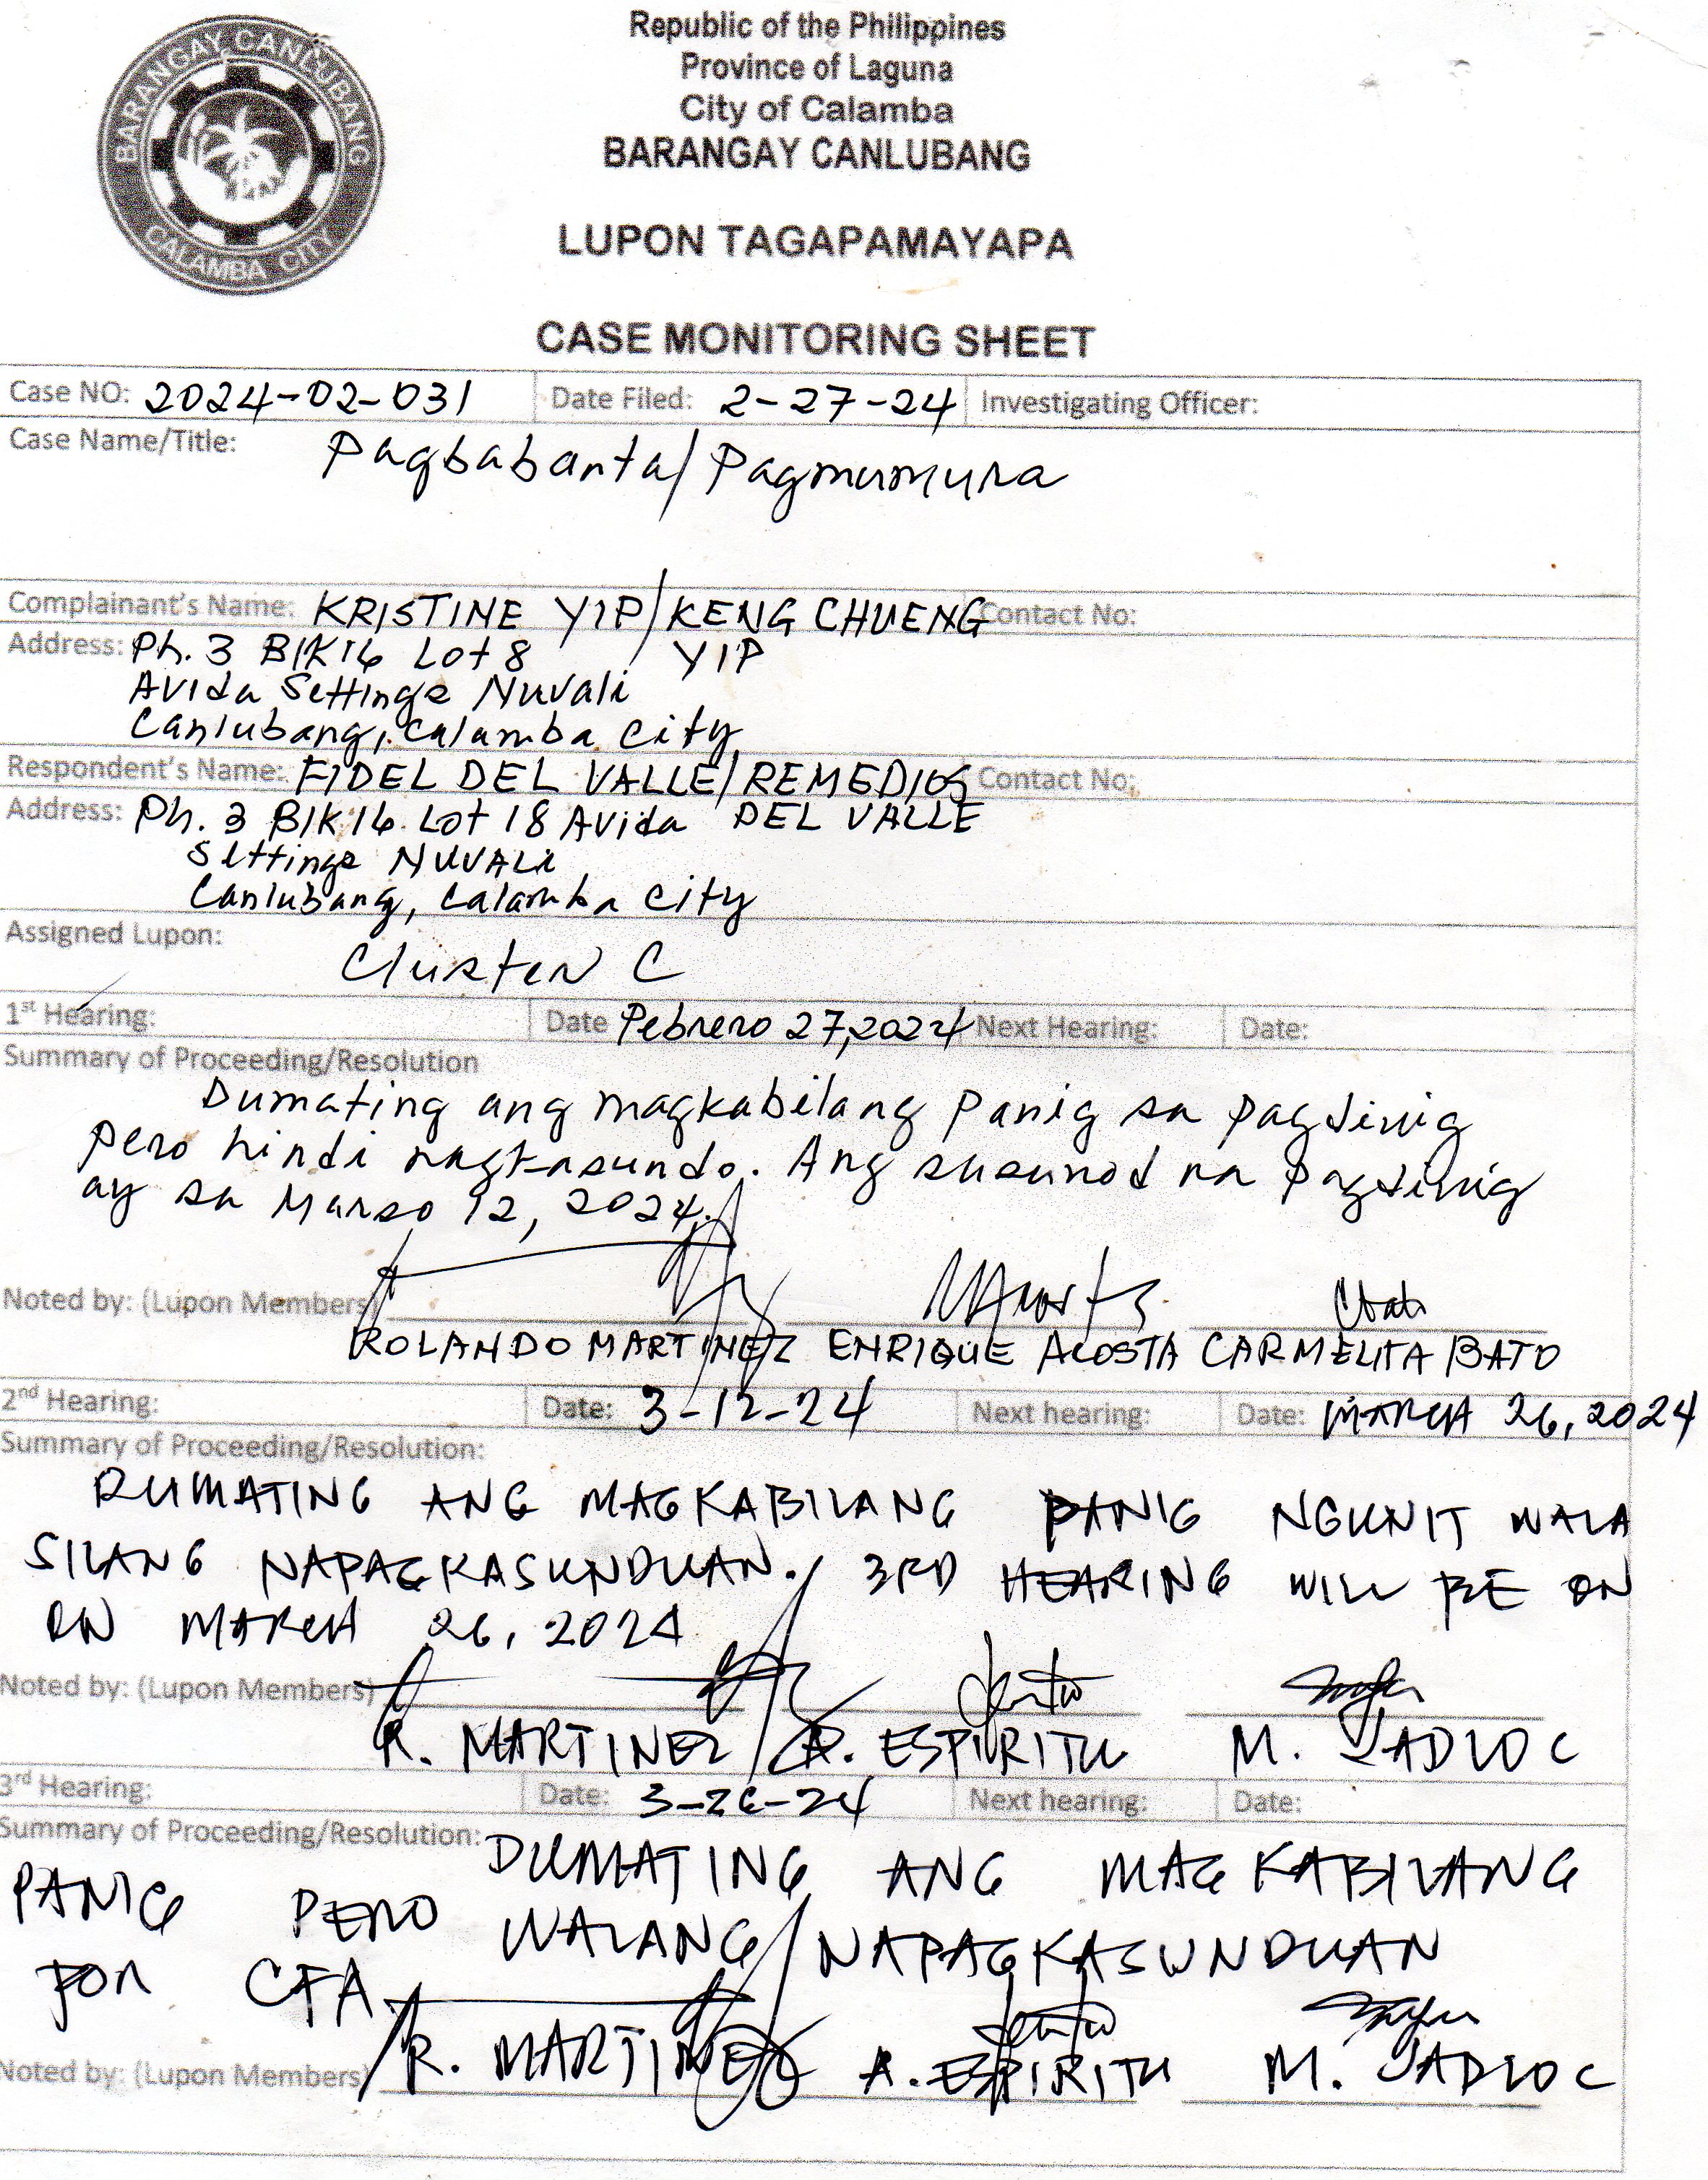 BARANGAY CANLUBANG
CALAMBA CITY
Republic of the Philippines
Province of Laguna
City of Calamba
BARANGAY CANLUBANG
LUPON TAGAPAMAYAPA
CASE MONITORING SHEET
Case NO: 2024-02-031 Date Filed: 2-27-24 Investigating Officer:
Case Name/Title: Pagbabanta/Pagmumura
Complainant's Name: KRISTINE YIP/KENG CHUENG Contact No:
Address: Ph. 3 Blk 16 Lot 8 YIP
Avida Settings Nuvali
Canlubang, Calamba City
Respondent's Name: FIDEL DEL VALLE/REMEDIOS Contact No:
Address: Ph. 3 Blk 16 Lot 18 Avida DEL VALLE
Settings NUVALi
Canlubang, Calamba City
Assigned Lupon: Cluster C
1st Hearing: Date Pebrero 27, 2024 Next Hearing: Date:
Summary of Proceeding/Resolution
Dumating ang magkabilang panig sa pagdinig
pero hindi nagkasundo. Ang susunod na pagdinig
ay sa Marso 12, 2024.
Noted by: (Lupon Members)
ROLANDO MARTINEZ ENRIQUE ACOSTA CARMELITA BATO
2nd Hearing: Date: 3-12-24 Next hearing: Date: MARCH 26, 2024
Summary of Proceeding/Resolution:
DUMATING ANG MAGKABILANG PANIG NGUNIT WALA
SILANG NAPAGKASUNDUAN. 3RD HEARING WILL BE ON
ON MARCH 26, 2024
Noted by: (Lupon Members)
R. MARTINEZ A. ESPIRITU M. JADLOC
3rd Hearing: Date: 3-26-24 Next hearing: Date:
Summary of Proceeding/Resolution: DUMATING ANG MAGKABILANG
PANIG PERO WALANG NAPAGKASUNDUAN
FOR CFA.
R. MARTINEZ A. ESPIRITU M. JADLOC
Noted by: (Lupon Members)